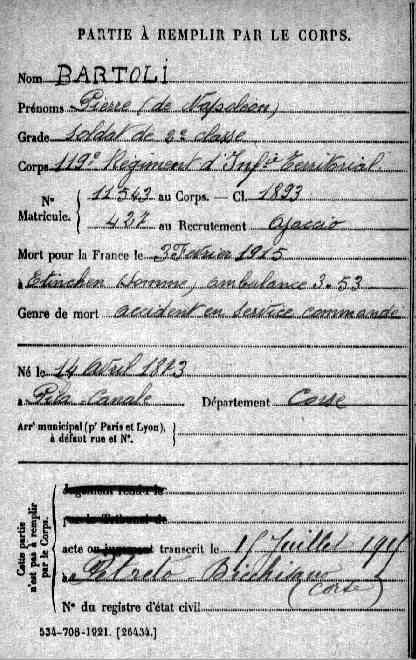 PARTIE À REMPLIR PAR LE CORPS.
Nom BARTOLI
Prénoms Pierre (de Napoléon)
Grade Soldat de 2e classe
Corps 119e Régiment d'Infie Territorial.
Nº Matricule. { 11543 au Corps. — Cl. 1893
427 au Recrutement Ajaccio
Mort pour la France le 3 Février 1915
à Etinehen Somme, ambulance 3.53
Genre de mort accident en service commandé
Né le 14 avril 1873
à Pila-Canale Département Corse
Arrt municipal (pr Paris et Lyon), à défaut rue et Nº. }
Cette partie n'est pas à remplir par le Corps.
Jugement rendu le
par le Tribunal de
acte ou jugement transcrit le 15 Juillet 1915
à Petreto-Bicchisano
(Corse)
Nº du registre d'état civil
534-708-1921. [26434.]